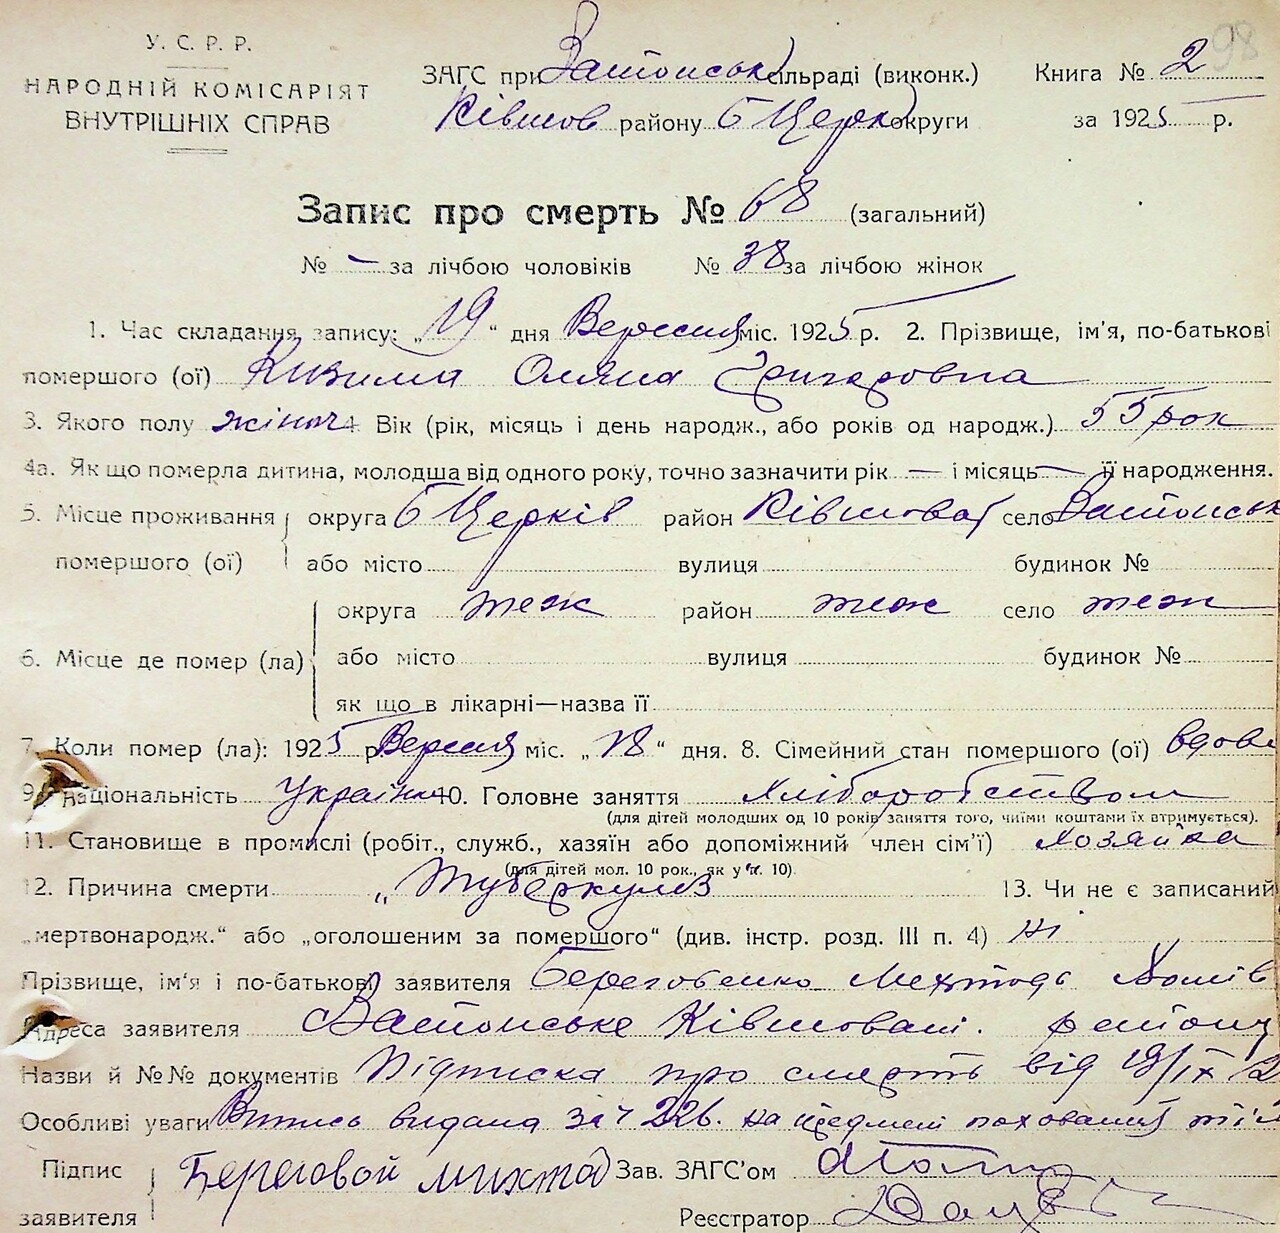 98
У. С. Р. Р.
НАРОДНІЙ КОМІСАРІЯТ
ВНУТРІШНІХ СПРАВ
ЗАГС при сільраді (виконк.) Книга № 2
району Б Церк округи за 1925 р.
Запис про смерть № 68 (загальний)
№ — за лічбою чоловіків № 38 за лічбою жінок
1. Час складання запису: „19“ дня Вересня міс. 1925 р. 2. Прізвище, ім’я, по-батькові
помершого (ої) Кизима Оляна Григоровна
3. Якого полу жіноч 4 Вік (рік, місяць і день народж., або років од народж.) 55 рок
4а. Як що померла дитина, молодша від одного року, точно зазначити рік — і місяць — її народження.
5. Місце проживання округа Б Церків район село
помершого (ої) або місто вулиця будинок №
округа теж район теж село теж
6. Місце де помер (ла) або місто вулиця будинок №
як що в лікарні—назва її
7. Коли помер (ла): 1925 р. Вересня міс. „18“ дня. 8. Сімейний стан помершого (ої) вдова
9. Національність Україн 10. Головне заняття Хліборобством
(для дітей молодших од 10 років заняття того, чиїми коштами їх втримується).
11. Становище в промислі (робіт., служб., хазяїн або допоміжний член сім’ї) Хозяйка
(для дітей мол. 10 рок., як у п. 10).
12. Причина смерти „Туберкульоз 13. Чи не є записаний
„мертвонародж.“ або „оголошеним за помершого“ (див. інстр. розд. III п. 4) ні
Прізвище, ім’я і по-батькові заявителя Береговенко
Адреса заявителя
Назви й №№ документів Підписка про смерть від 19/IX
Особливі уваги Випись видана за ч 226. на предмет поховання
Підпис Береговой Зав. ЗАГС’ом
заявителя Реєстратор